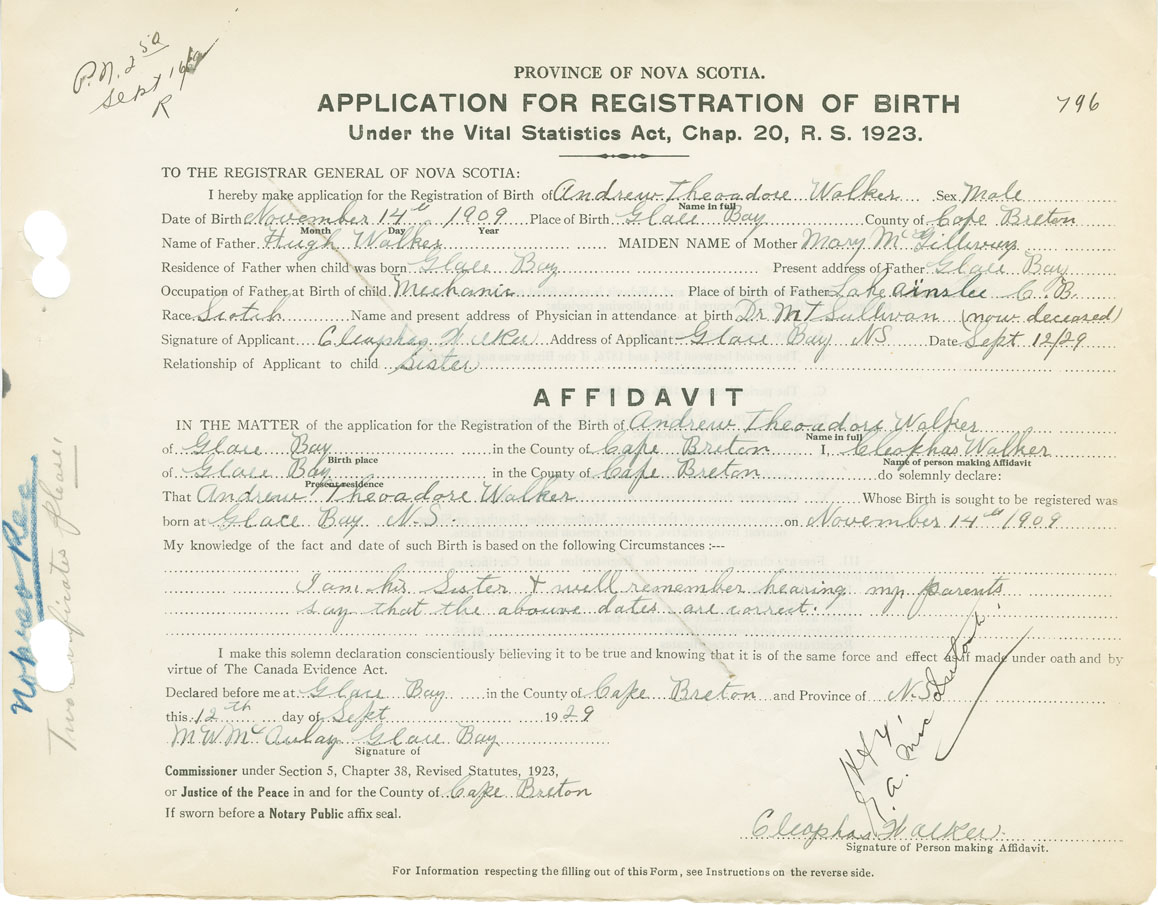 P.N. 2 50
Sept 16
R
796
PROVINCE OF NOVA SCOTIA.
APPLICATION FOR REGISTRATION OF BIRTH
Under the Vital Statistics Act, Chap. 20, R. S. 1923.
TO THE REGISTRAR GENERAL OF NOVA SCOTIA:
I hereby make application for the Registration of Birth of Andrew Theoadore Walker Sex Male
Name in full
Date of Birth November 14th 1909 Place of Birth Glace Bay County of Cape Breton
Month Day Year
Name of Father Hugh Walker MAIDEN NAME of Mother Mary McGillivray
Residence of Father when child was born Glace Bay Present address of Father Glace Bay
Occupation of Father at Birth of child Mechanic Place of birth of Father Lake Ainslee C.B.
Race Scotch Name and present address of Physician in attendance at birth Dr. M T Sullivan (now deceased)
Signature of Applicant Cleophas Walker Address of Applicant Glace Bay NS Date Sept 12/29
Relationship of Applicant to child Sister
AFFIDAVIT
IN THE MATTER of the application for the Registration of the Birth of Andrew Theoadore Walker
Name in full
of Glace Bay in the County of Cape Breton I, Cleophas Walker
Birth place Name of person making Affidavit
of Glace Bay in the County of Cape Breton do solemnly declare:
Present residence
That Andrew Theoadore Walker Whose Birth is sought to be registered was
born at Glace Bay N.S. on November 14th 1909
My knowledge of the fact and date of such Birth is based on the following Circumstances :---
I am his Sister & well remember hearing my parents
say that the above dates are correct.
I make this solemn declaration conscientiously believing it to be true and knowing that it is of the same force and effect as if made under oath and by
virtue of The Canada Evidence Act.
Declared before me at Glace Bay in the County of Cape Breton and Province of N.S.
this 12th day of Sept 1929
M W McAulay Glace Bay
Signature of
Commissioner under Section 5, Chapter 38, Revised Statutes, 1923,
or Justice of the Peace in and for the County of Cape Breton
If sworn before a Notary Public affix seal.
Cleophas Walker
Signature of Person making Affidavit.
For Information respecting the filling out of this Form, see Instructions on the reverse side.
Two Certificates please!